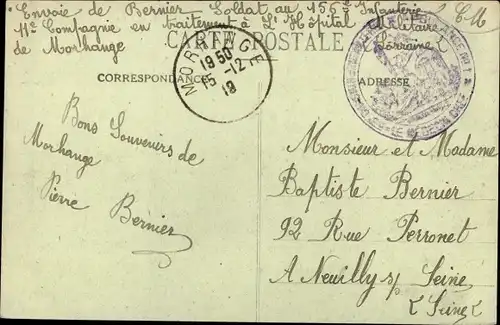 Envoie de Bernier Soldat au 156e Infanterie
11e Compagnie en traitement à l'Hôpital Militaire
de Morhange Lorraine
F.M.
CARTE POSTALE
CORRESPONDANCE
ADRESSE
MORHANGE
19 50
15-12
19
Bons Souvenirs de
Morhange
Pierre Bernier
Monsieur et Madame
Baptiste Bernier
92 Rue Perronet
A Neuilly s/ Seine
(Seine)